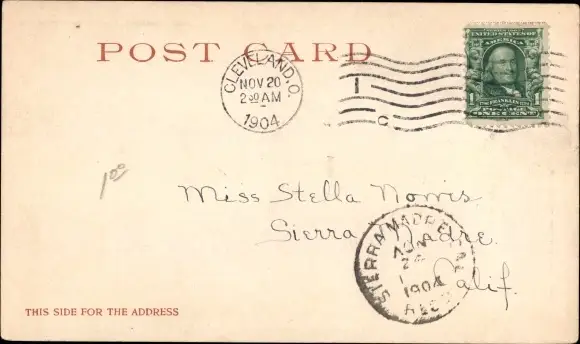 POST CARD
CLEVELAND, O.
NOV 20
2 30 AM
1904
1
C
UNITED STATES OF
AMERICA
1 FRANKLIN 1
POSTAGE
ONE CENT
1 00
Miss Stella Norris
Sierra Madre
Calif.
SIERRA MADRE, CAL
NOV
1904
REC'D
THIS SIDE FOR THE ADDRESS